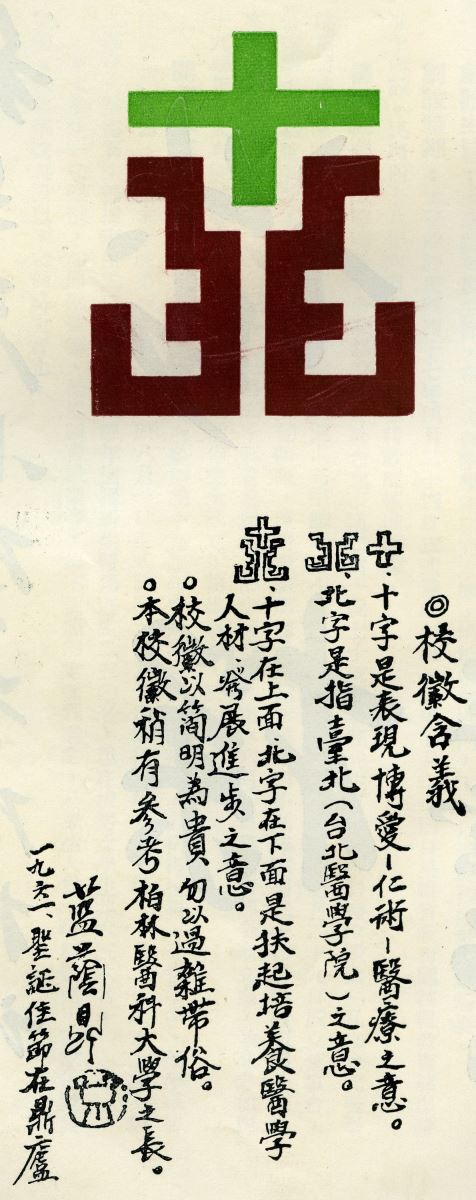 ◎校徽含義
十字是表現博愛–仁術–醫療之意。
北字是指臺北(台北醫學院)之意。
十字在上面、北字在下面是扶起培養醫學
人材、發展進步之意。
○校徽以簡明為貴 勿以過雜帶俗。
○本校徽稍有參考柏林醫科大學之長。
藍蔭鼎
一九六一、聖誕佳節在鼎廬